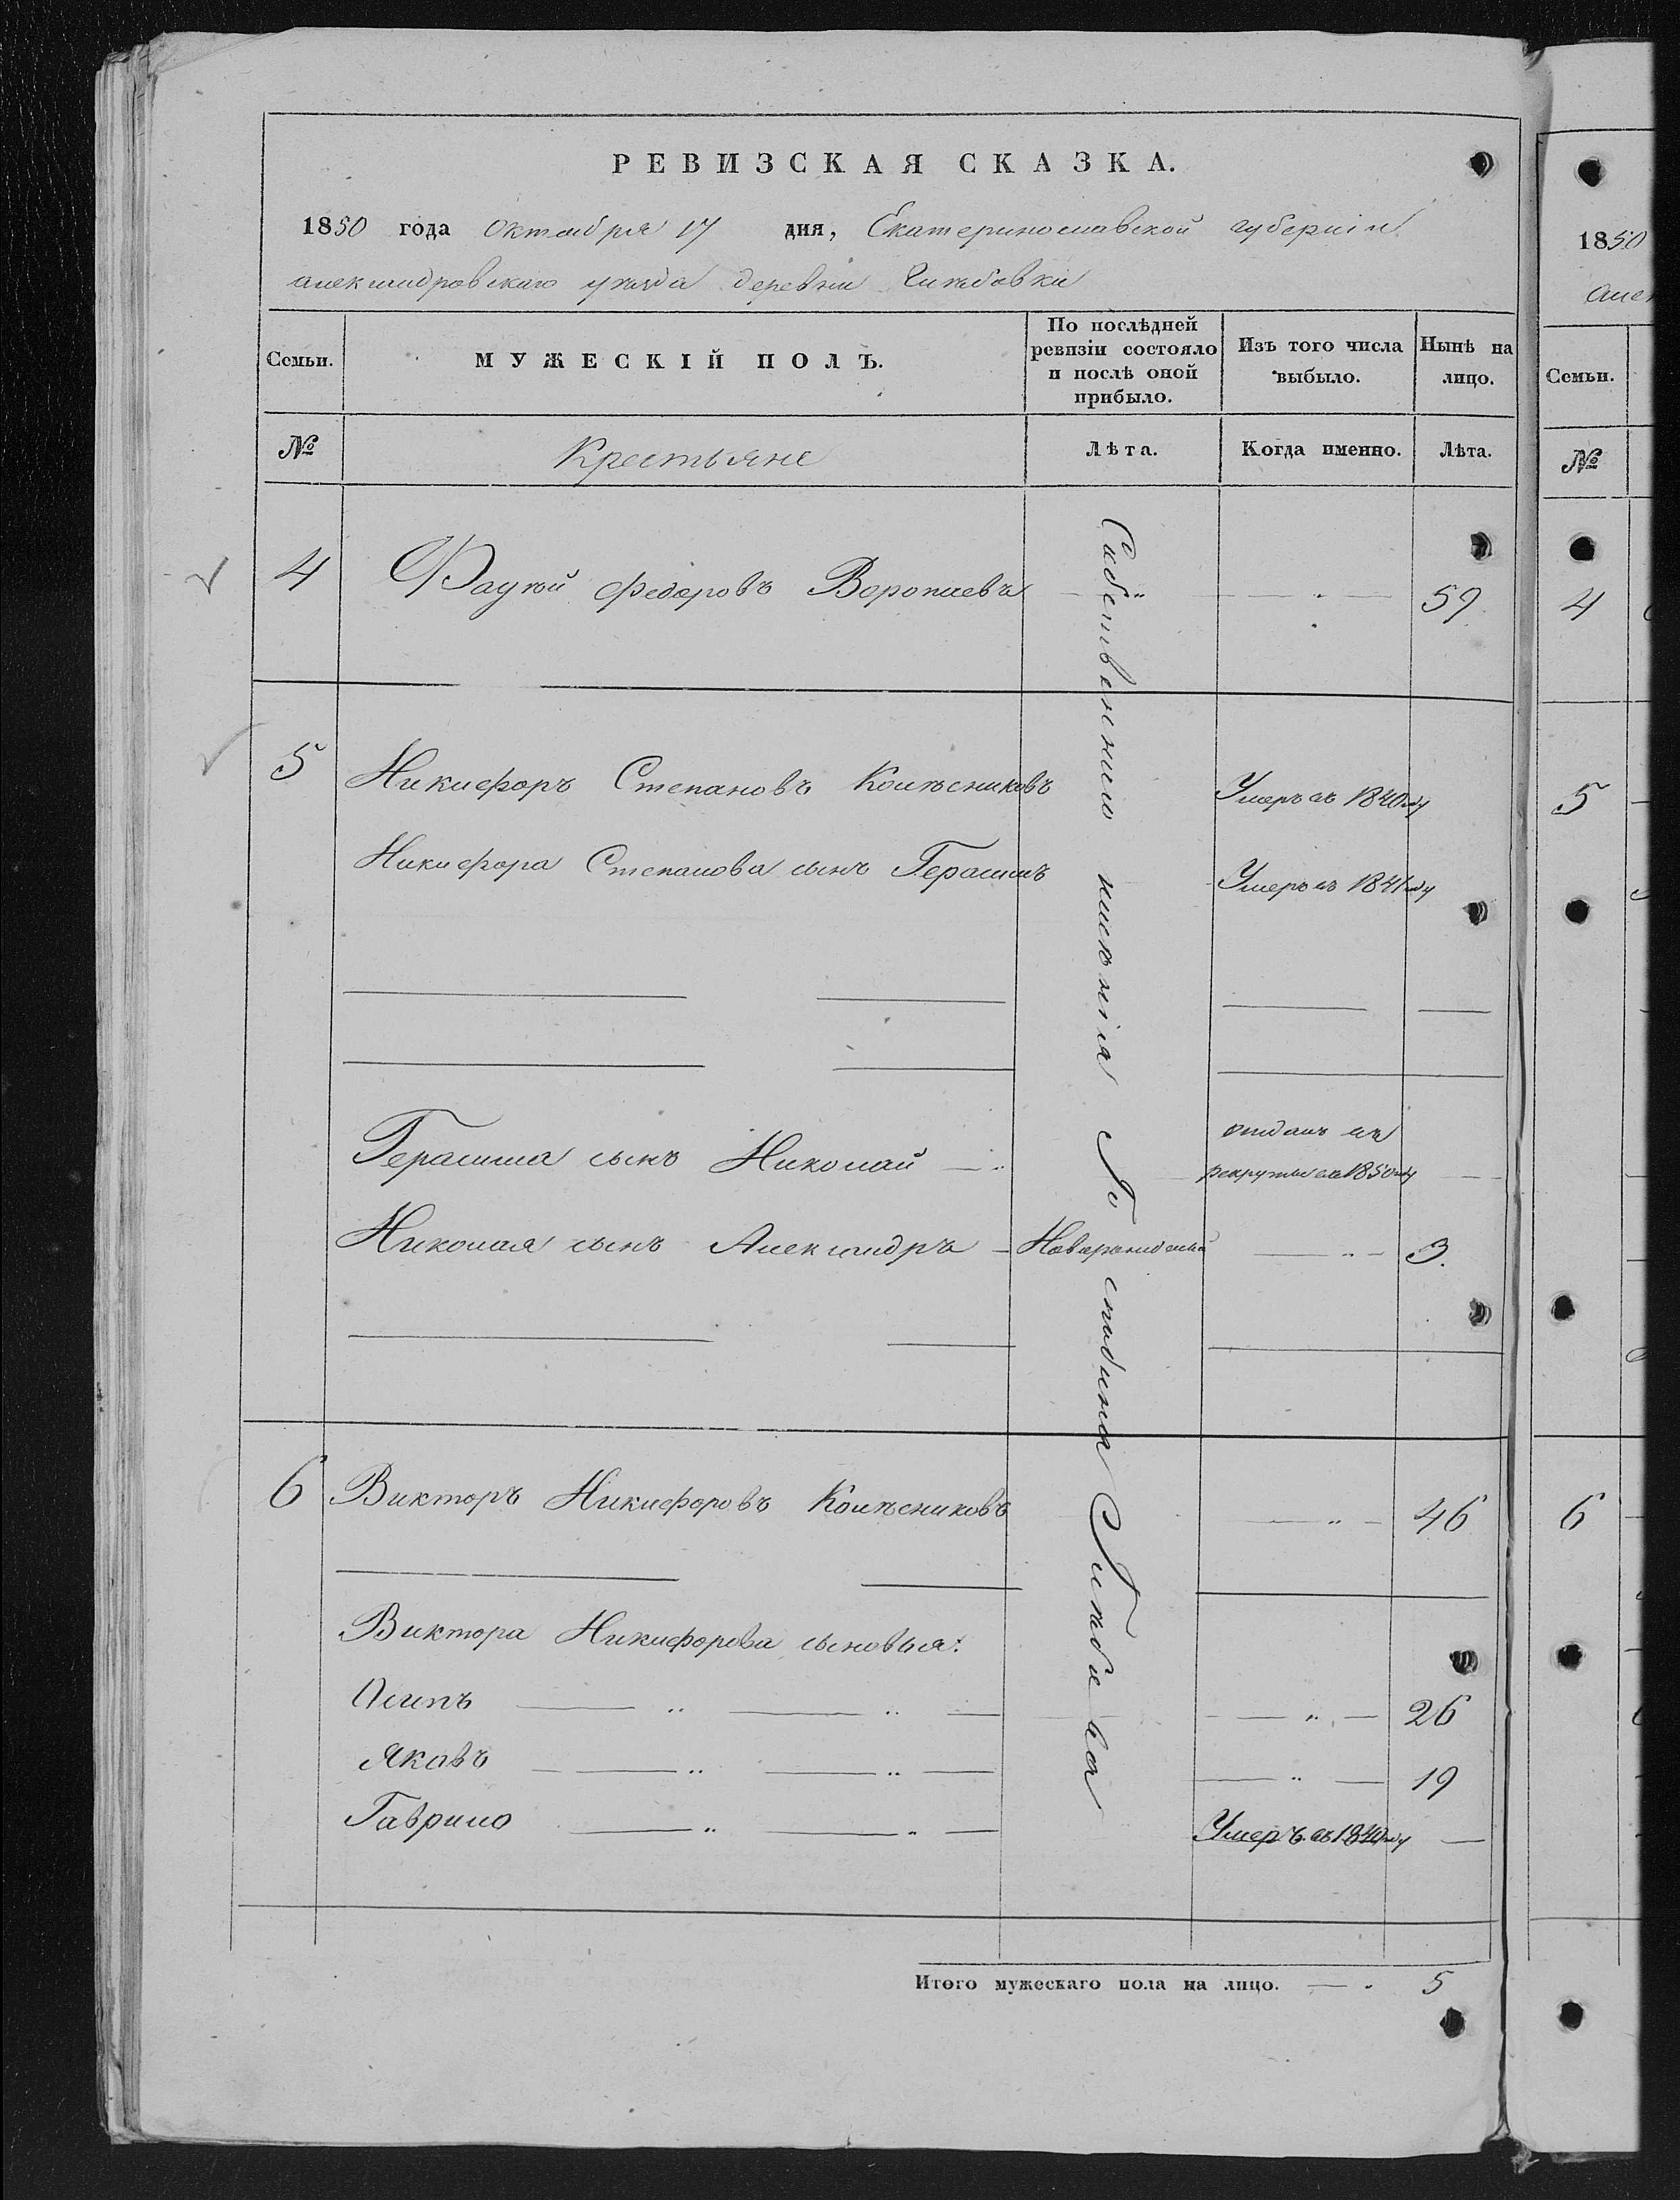 РЕВИЗСКАЯ СКАЗКА.
1850 года октября 17 дня, Екатеринославской губерніи
александровскаго уѣзда деревни
Семьи.
МУЖЕСКІЙ ПОЛЪ.
По послѣдней ревизіи состояло и послѣ оной прибыло.
Изъ того числа выбыло.
Нынѣ на лицо.
№
Крестьяне
Лѣта.
Когда именно.
Лѣта.
4 Федоровъ Воропаевъ 59
5 Никифоръ Степановъ Колѣсниковъ Умеръ въ 1840му
Никифора Степанова сынъ Герасимъ Умеръ въ 1841му
Герасима сынъ Николай отданъ въ
рекруты въ 1850му
Николая сынъ Александръ Новорожденый 3.
6 Викторъ Никифоровъ Колѣсниковъ 46
Виктора Никифорова сыновья:
Осипъ 26
Яковъ 19
Гаврило Умеръ въ 1840му
имѣнія Господина
Итого мужескаго пола на лицо. 5
1850
Семьи.
№
4
5
6